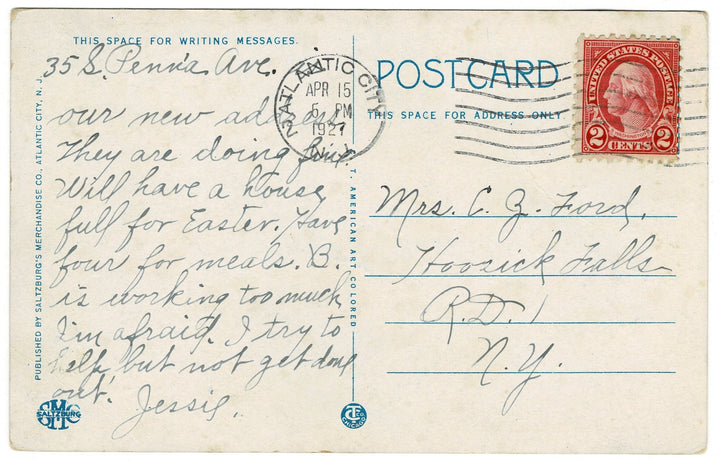 THIS SPACE FOR WRITING MESSAGES.
35 S. Penna Ave. is
our new address
They are doing fine.
Will have a house
full for Easter. Have
four for meals. B.
is working too much
I'm afraid. I try to
help, but not get done
out.
Jessie.
PUBLISHED BY SALTZBURG'S MERCHANDISE CO., ATLANTIC CITY, N. J.
SMC
SALTZBURG
T. AMERICAN ART, COLORED
CHICAGO
ATLANTIC CITY
APR 15
PM
1927
N.J.
POSTCARD
THIS SPACE FOR ADDRESS ONLY
UNITED STATES POSTAGE
2 CENTS 2
Mrs. C. Z. Ford,
Hoosick Falls
R.D. 1
N.Y.